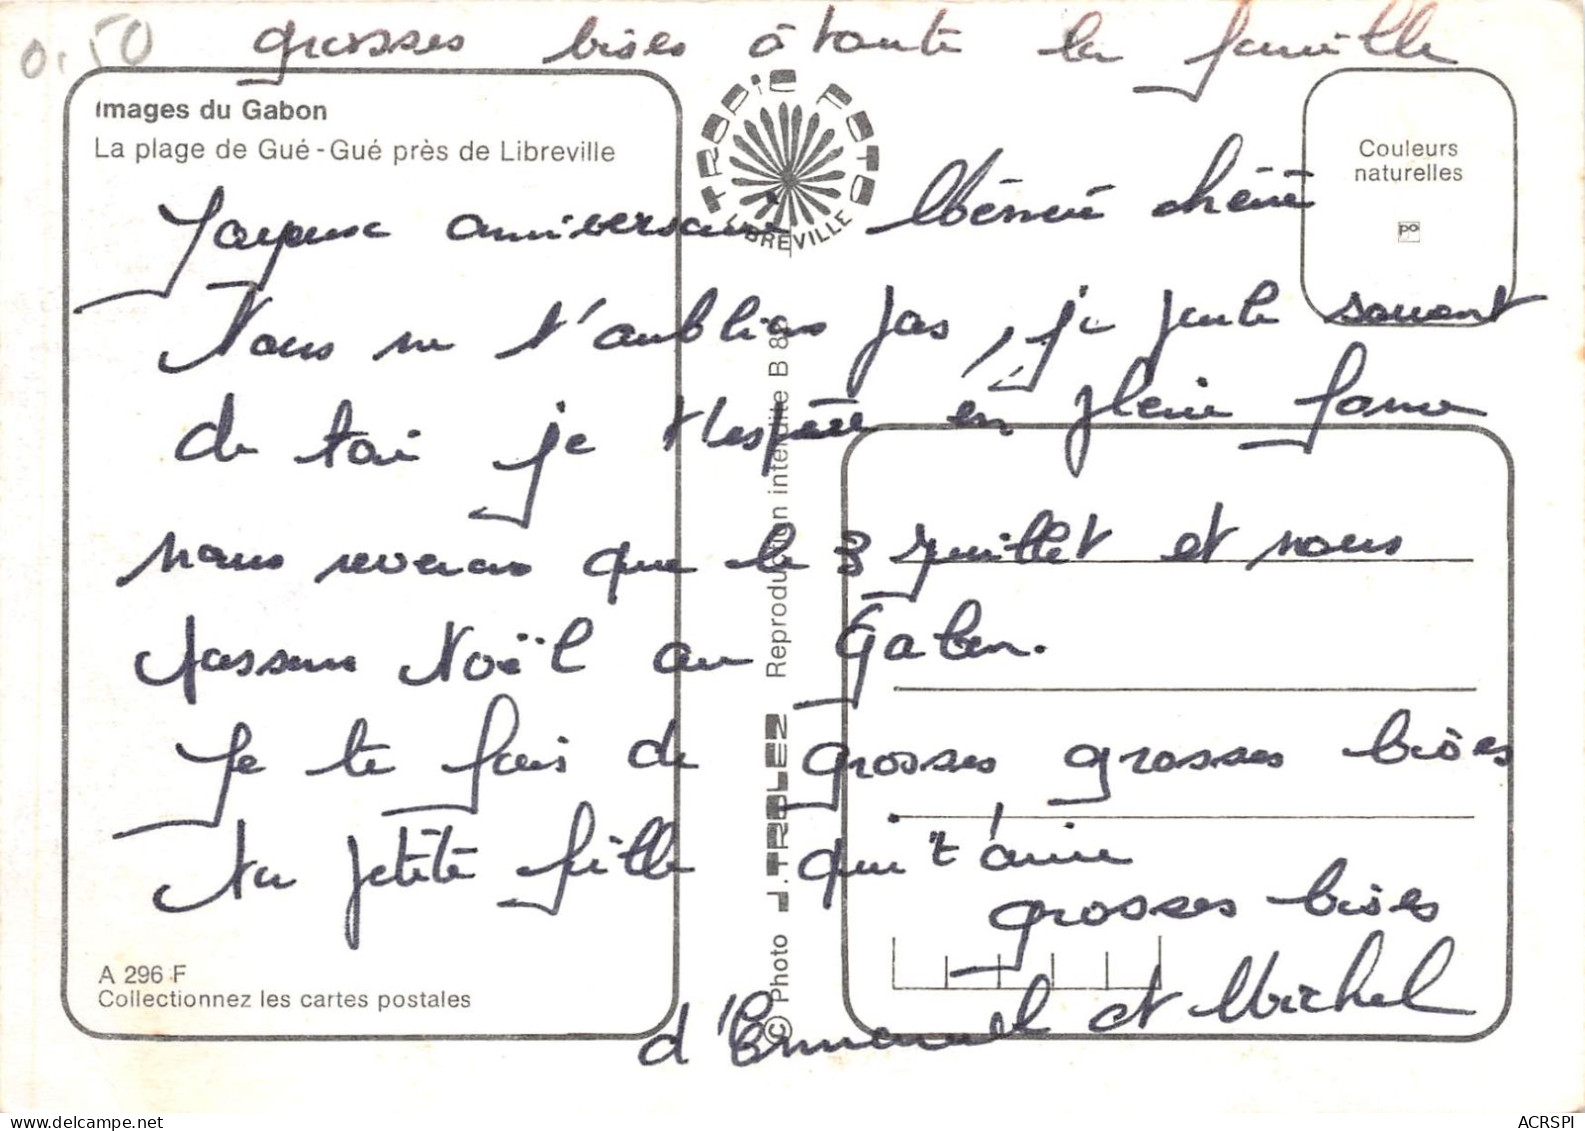 0.50
grosses bises à toute la famille
Images du Gabon
La plage de Gué-Gué près de Libreville
TROPIC FOTO
LIBREVILLE
Couleurs
naturelles
po
Joyeux anniversaire Mémé chérie
Nous ne t'oublions pas, je parle souvent
de toi je t'espère en pleine forme
nous reverrons que le 3 juillet et nous
passons Noël au Gabon.
Je te fais de grosses grosses bises
Ta petite fille qui t'aime
grosses bises
d'Emmanuel et Michel
© Photo J. TROLEZ Reproduction interdite B 88
A 296 F
Collectionnez les cartes postales
ACRSPI